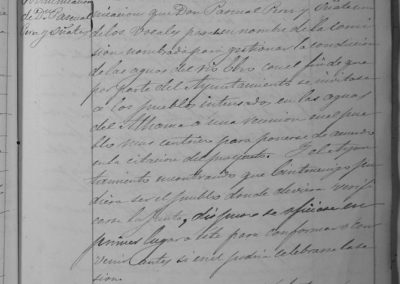 de Dn Pascual
cación que Don Pascual
de los Vocales para en nombre de la comi
sion nombrada para gestionar la condución
de las aguas del río Ebro con el fin de que
por parte del Ayuntamiento se invitase
a los pueblos interesados en las aguas
del Alhama a una reunion en el pue
blo mas centrico para ponerse de acuerdo
en la citacion del proyecto. Y el Ayun
tamiento encontrando que Cintruenigo pu
diera ser el pueblo donde debiera verifi
carse la junta, dispuso se oficiase en
primer lugar a este para conformar o con
venir antes si en él podria celebrarse la se
sion.